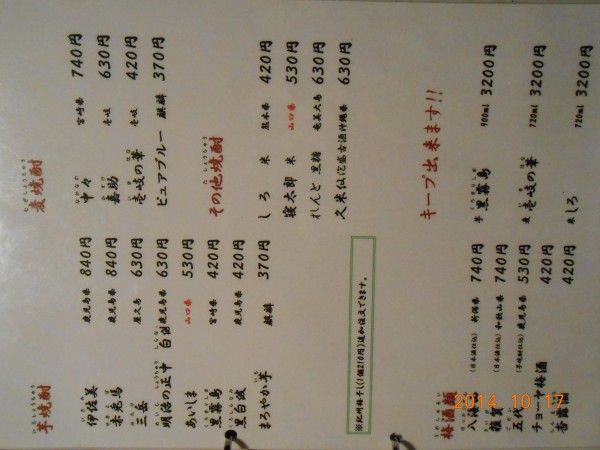 芋焼酎
伊佐美 鹿児島県 840円
赤兎馬 鹿児島県 840円
三岳 屋久島 630円
明治の正中 白波 鹿児島県 630円
あいしま 山口県 530円
黒霧島 宮崎県 420円
黒白波 鹿児島県 420円
まろやか芋 麒麟 370円
麦焼酎
中々 宮崎県 740円
嘉助 壱岐 630円
壱岐の華 壱岐 420円
ピュアブルー 麒麟 370円
その他焼酎
しろ 米 熊本県 420円
寝太郎 米 山口県 530円
れんと 黒糖 奄美大島 630円
久米仙 泡盛古酒 沖縄県 630円
※紀州梅干し(1個210円)追加注文できます。
キープ出来ます!!
芋 黒霧島 900ml 3200円
麦 壱岐の華 720ml 3200円
米 しろ 720ml 3200円
梅酒
(日本酒仕込) 新潟県 740円
雑賀 (日本酒仕込) 和歌山県 740円
五代 (芋焼酎仕込) 鹿児島県 530円
チョーヤ梅酒 420円
杏露 420円
2014 10 17